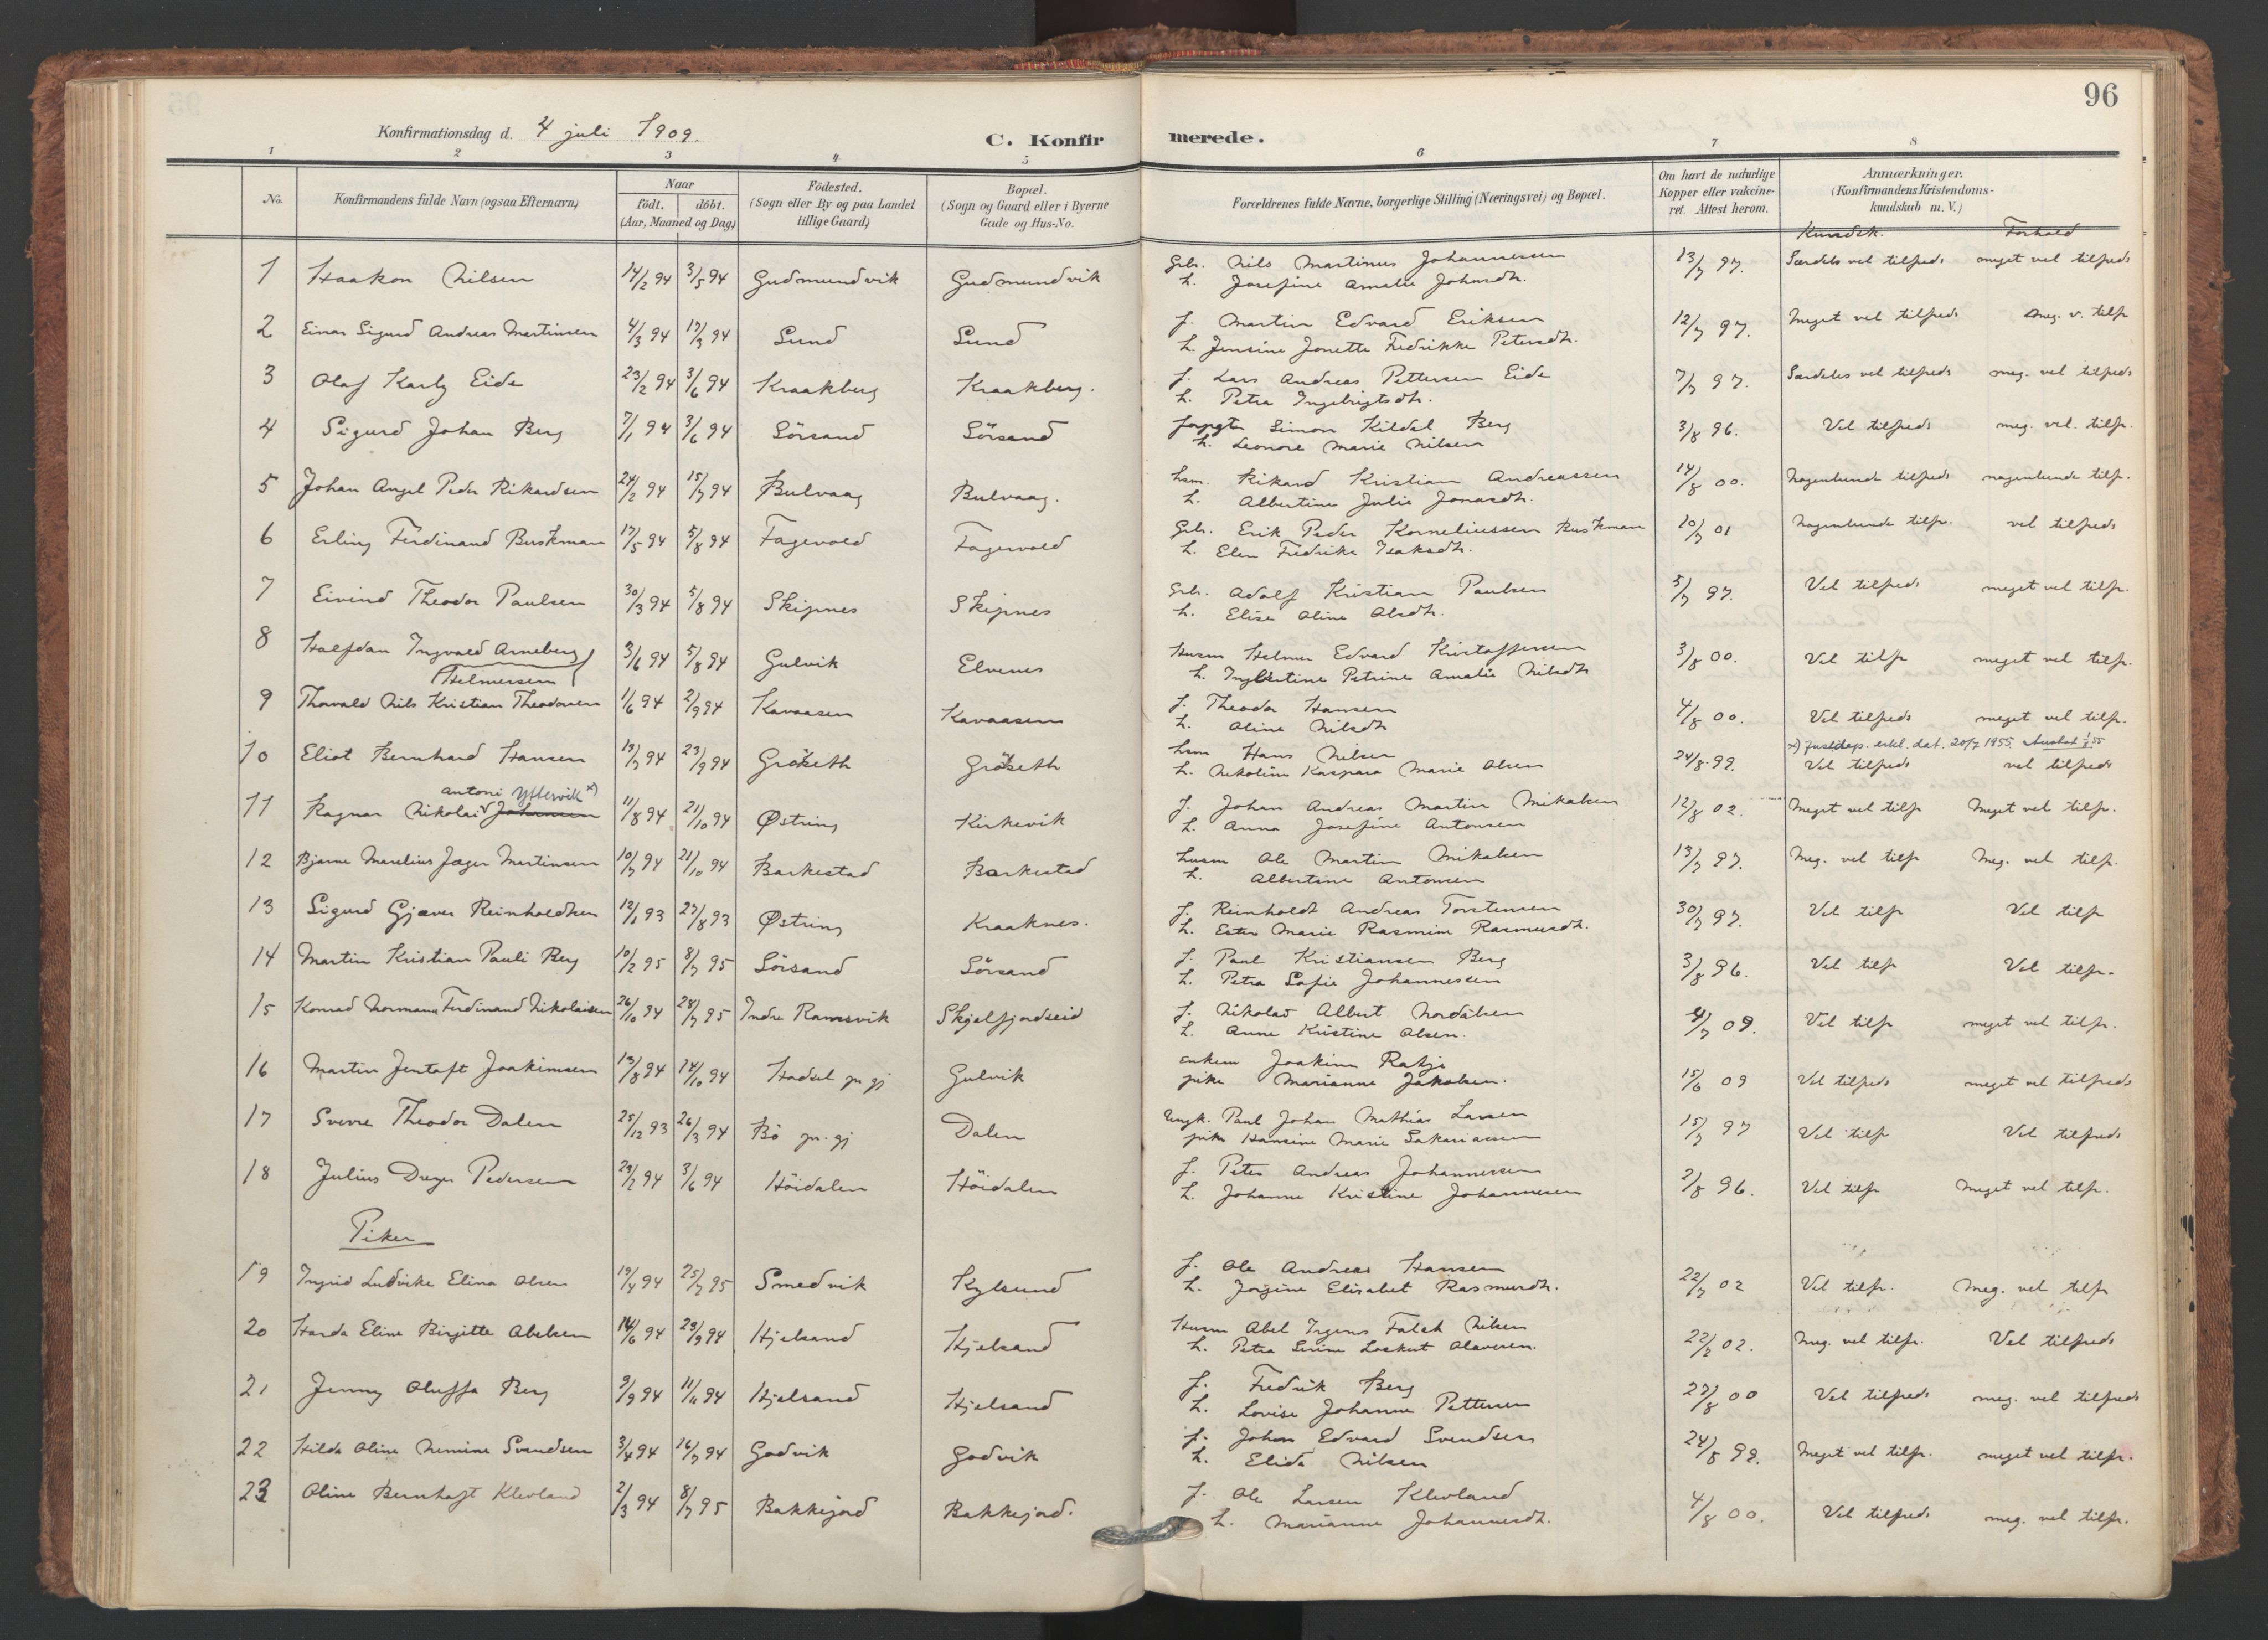 96
Konfirmationsdag d. 4 juli 1909.
C. Konfirmerede.
1 2 3 4 5 6 7 8
No. Konfirmandens fulde Navn (ogsaa Efternavn) Naar födt. döbt. (Aar, Maaned og Dag) Födested. (Sogn eller By og paa Landet tillige Gaard) Bopæl. (Sogn og Gaard eller i Byerne Gade og Hus-No. Forældrenes fulde Navne, borgerlige Stilling (Næringsvei) og Bopæl. Om havt de naturlige Kopper eller vakcineret. Attest herom. Anmærkninger. (Konfirmandens Kristendomskundskab m. V.)
Kundsk. Forhold
1 Haakon Nilsen 14/2 94 3/5 94 Gudmundvik Gudmundvik Gbr. Nils Martinus Johannessen 13/7 97. Særdeles vel tilfreds meget vel tilfreds
h. Josefine Amalie Johnsdtr.
2 Einar Sigurd Andreas Martinsen 4/3 94 17/3 94 Sund Sund f. Martin Edvard Eriksen 12/7 97. Meget vel tilfreds Meg. v. tilfr
h. Jensine Jonette Fredrikke Petersdtr.
3 Olaf Karly Eide 23/2 94 3/6 94 Kraakberg Kraakberg. f. Lars Andreas Pettersen Eide 7/7 97. Særdeles vel tilfreds meg. vel tilfreds
h. Petra Ingebrigtsdtr.
4 Sigurd Johan Berg 7/1 94 3/6 94 Sörsand Sörsand Simon Kildal Berg 3/8 96. Vel tilfreds meg. vel. tilfr.
h. Leonore Marie Nilsen
5 Johan Angel Peder Rikardsen 24/2 94 15/7 94 Bulvaag Bulvaag. hsm. Rikard Kristian Andreassen 14/8 00. Nogenlunde tilfreds nogenlunde tilfr.
h. Albertine Julie Jonasdtr.
6 Erling Ferdinand Buskman 17/5 94 5/8 94 Fagervold Fagervold Gbr. Erik Peder Korneliussen Buskman 10/7 01 Nogenlunde tilfr. vel tilfreds
h. Elen Fredrike Isaksdtr.
7 Eivind Theodor Paulsen 30/3 94 5/8 94 Skipnes Skipnes Gbr. Adolf Kristian Paulsen 5/7 97. Vel tilfreds meget vel tilfr.
h. Elise Oline Olsdtr.
8 Halfdan Ingvald Arneberg 3/6 94 5/8 94 Gulvik Elvenes Husm Helmer Edvard Kristoffersen 3/8 00. Vel tilfr meget vel tilfr.
(Helmersen) h. Ingbertine Petrine Amalie Nilsdtr
9 Thorvald Nils Kristian Theodorsen 1/6 94 2/9 94 Kavaasen Kavaasen f. Theodor Hansen 4/8 00. Vel tilfreds meget vel tilfr.
h. Oline Nilsdtr
10 Eliot Bernhard Hansen 13/7 94 23/9 94 Gröseth Gröseth hsm Hans Nilsen 24/8 99. Vel tilfreds vel tilfreds
h. Nikoline Kaspara Marie Olsen
x) Justdeps. erkl. dat. 20/7 1955.
Antoni Yttervik x)
11 Ragnar Nikolai Johansen 11/8 94 21/10 94 Østring Kirkevik f. Johan Andreas Martin Mikalsen 12/8 02. Meget vel tilfr Meget vel tilfr.
h. Anna Josefine Antonsen
12 Bjarne Marelius Jæger Martinsen 10/7 94 21/10 94 Barkestad Barkestad husm Ole Martin Mikalsen 13/7 97. Meg. vel tilfr Meg. vel tilfr.
h. Albertine Antonsen
13 Sigurd Gjæver Reinholdtsen 12/1 93 27/8 93 Østring Kraaknes. f. Reinholdt Andreas Torstensen 30/7 97. Vel tilfr Vel tilfr
h. Ester Marie Rasmine Rasmusdtr.
14 Martin Kristian Pauli Berg 10/2 95 8/7 95 Sörsand Sörsand f. Paul Kristiansen Berg 3/8 96. Vel tilfr Vel tilfr.
h. Petra Sofie Johannessen
15 Konrad Normann Ferdinand Nikolaisen 26/10 94 28/7 95 Indre Ramsvik Skjelfjordseid f. Nikolai Albert Nordilsen 4/7 09. Vel tilfr meget vel tilfr.
h. Anne Kristine Olsen.
16 Martin Jentoft Joakimsen 13/8 94 14/10 94 Hadsel pr gj Gulvik Enkem Joakim Ratje 15/6 09 Vel tilfreds meget vel tilfreds
pike Marianne Jakobsen.
17 Sverre Theodor Dalen 25/12 93 26/3 94 Bö pr. gj Dalen Ungk. Paul Johan Mathias Larsen 15/7 97 Vel tilfr Vel tilfreds
pike Hansine Marie Sakariassen
18 Julius Dreyer Pedersen 29/2 94 3/6 94 Höidalen Höidalen f. Peter Andreas Johannessen 2/8 96. Vel tilfr Meget vel tilfr.
h. Johanne Kristine Johannesen
Piker
19 Ingrid Ludvike Elina Olsen 19/4 94 25/7 95 Smedvik Kylsund f. Ole Andreas Hansen 22/7 02 Vel tilfr. Meg. vel tilfr
h. Jorgine Elisabet Rasmusdtr.
20 Harda Eline Birgitte Abelsen 14/6 94 23/9 94 Hjelsand Hjelsand Husm Abel Irgens Falch Nilsen 22/7 02. Meg. vel tilfr. Vel tilfreds
h. Petra Serine Lockert Olavesen.
21 Jenny Oluffa Berg 9/9 94 11/11 94 Hjelsand Hjelsand f. Fredrik Berg 27/8 00 Vel tilfreds meg. vel tilfreds
h. Lovise Johanne Pettersen
22 Hilda Oline Nemine Svendsen 3/4 94 16/7 94 Godvik Godvik f. Johan Edvard Svendsen 24/8 99. Meget vel tilfr. meget vel tilfr.
h. Elida Nilsen
23 Oline Bernhoft Klevland 2/3 94 8/7 95 Bakkejord Bakkejord. f. Ole Larsen Klevland 4/8 00. Vel tilfreds meg. vel tilfr.
h. Marianne Johannesdtr.